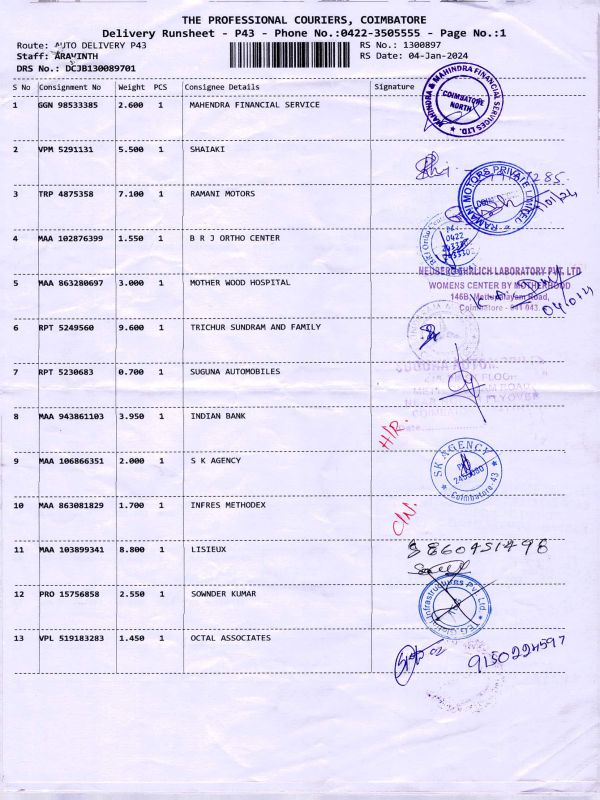 THE PROFESSIONAL COURIERS, COIMBATORE
Delivery Runsheet - P43 - Phone No.:0422-3505555 - Page No.:1
Route: AUTO DELIVERY P43
RS No.: 1300897
Staff: ARAVINTH
RS Date: 04-Jan-2024
DRS No.: DCJB130089701
S No Consignment No Weight PCS Consignee Details Signature
1 GGN 98533385 2.600 1 MAHENDRA FINANCIAL SERVICE
MAHINDRA & MAHINDRA FINANCIAL SERVICES LTD.
COIMBATORE
NORTH
2 VPM 5291131 5.500 1 SHAIAKI
3 TRP 4875358 7.100 1 RAMANI MOTORS
RAMANI MOTORS PRIVATE LIMITED
4 MAA 102876399 1.550 1 B R J ORTHO CENTER
0422
5 MAA 863280697 3.000 1 MOTHER WOOD HOSPITAL
NEUBERG EHRLICH LABORATORY PVT. LTD
WOMENS CENTER BY MOTHERHOOD
146B, Mettupalayam Road,
Coimbatore - 641 043.
6 RPT 5249560 9.600 1 TRICHUR SUNDRAM AND FAMILY
7 RPT 5230683 0.700 1 SUGUNA AUTOMOBILES
8 MAA 943861103 3.950 1 INDIAN BANK
H/R.
9 MAA 106866351 2.000 1 S K AGENCY
SK AGENCY
Coimbatore-43
10 MAA 863081829 1.700 1 INFRES METHODEX
C/N.
11 MAA 103899341 8.800 1 LISIEUX
8860451498
12 PRO 15756858 2.550 1 SOWNDER KUMAR
Infrastructures Pvt. Ltd.
13 VPL 519183283 1.450 1 OCTAL ASSOCIATES
9150224597